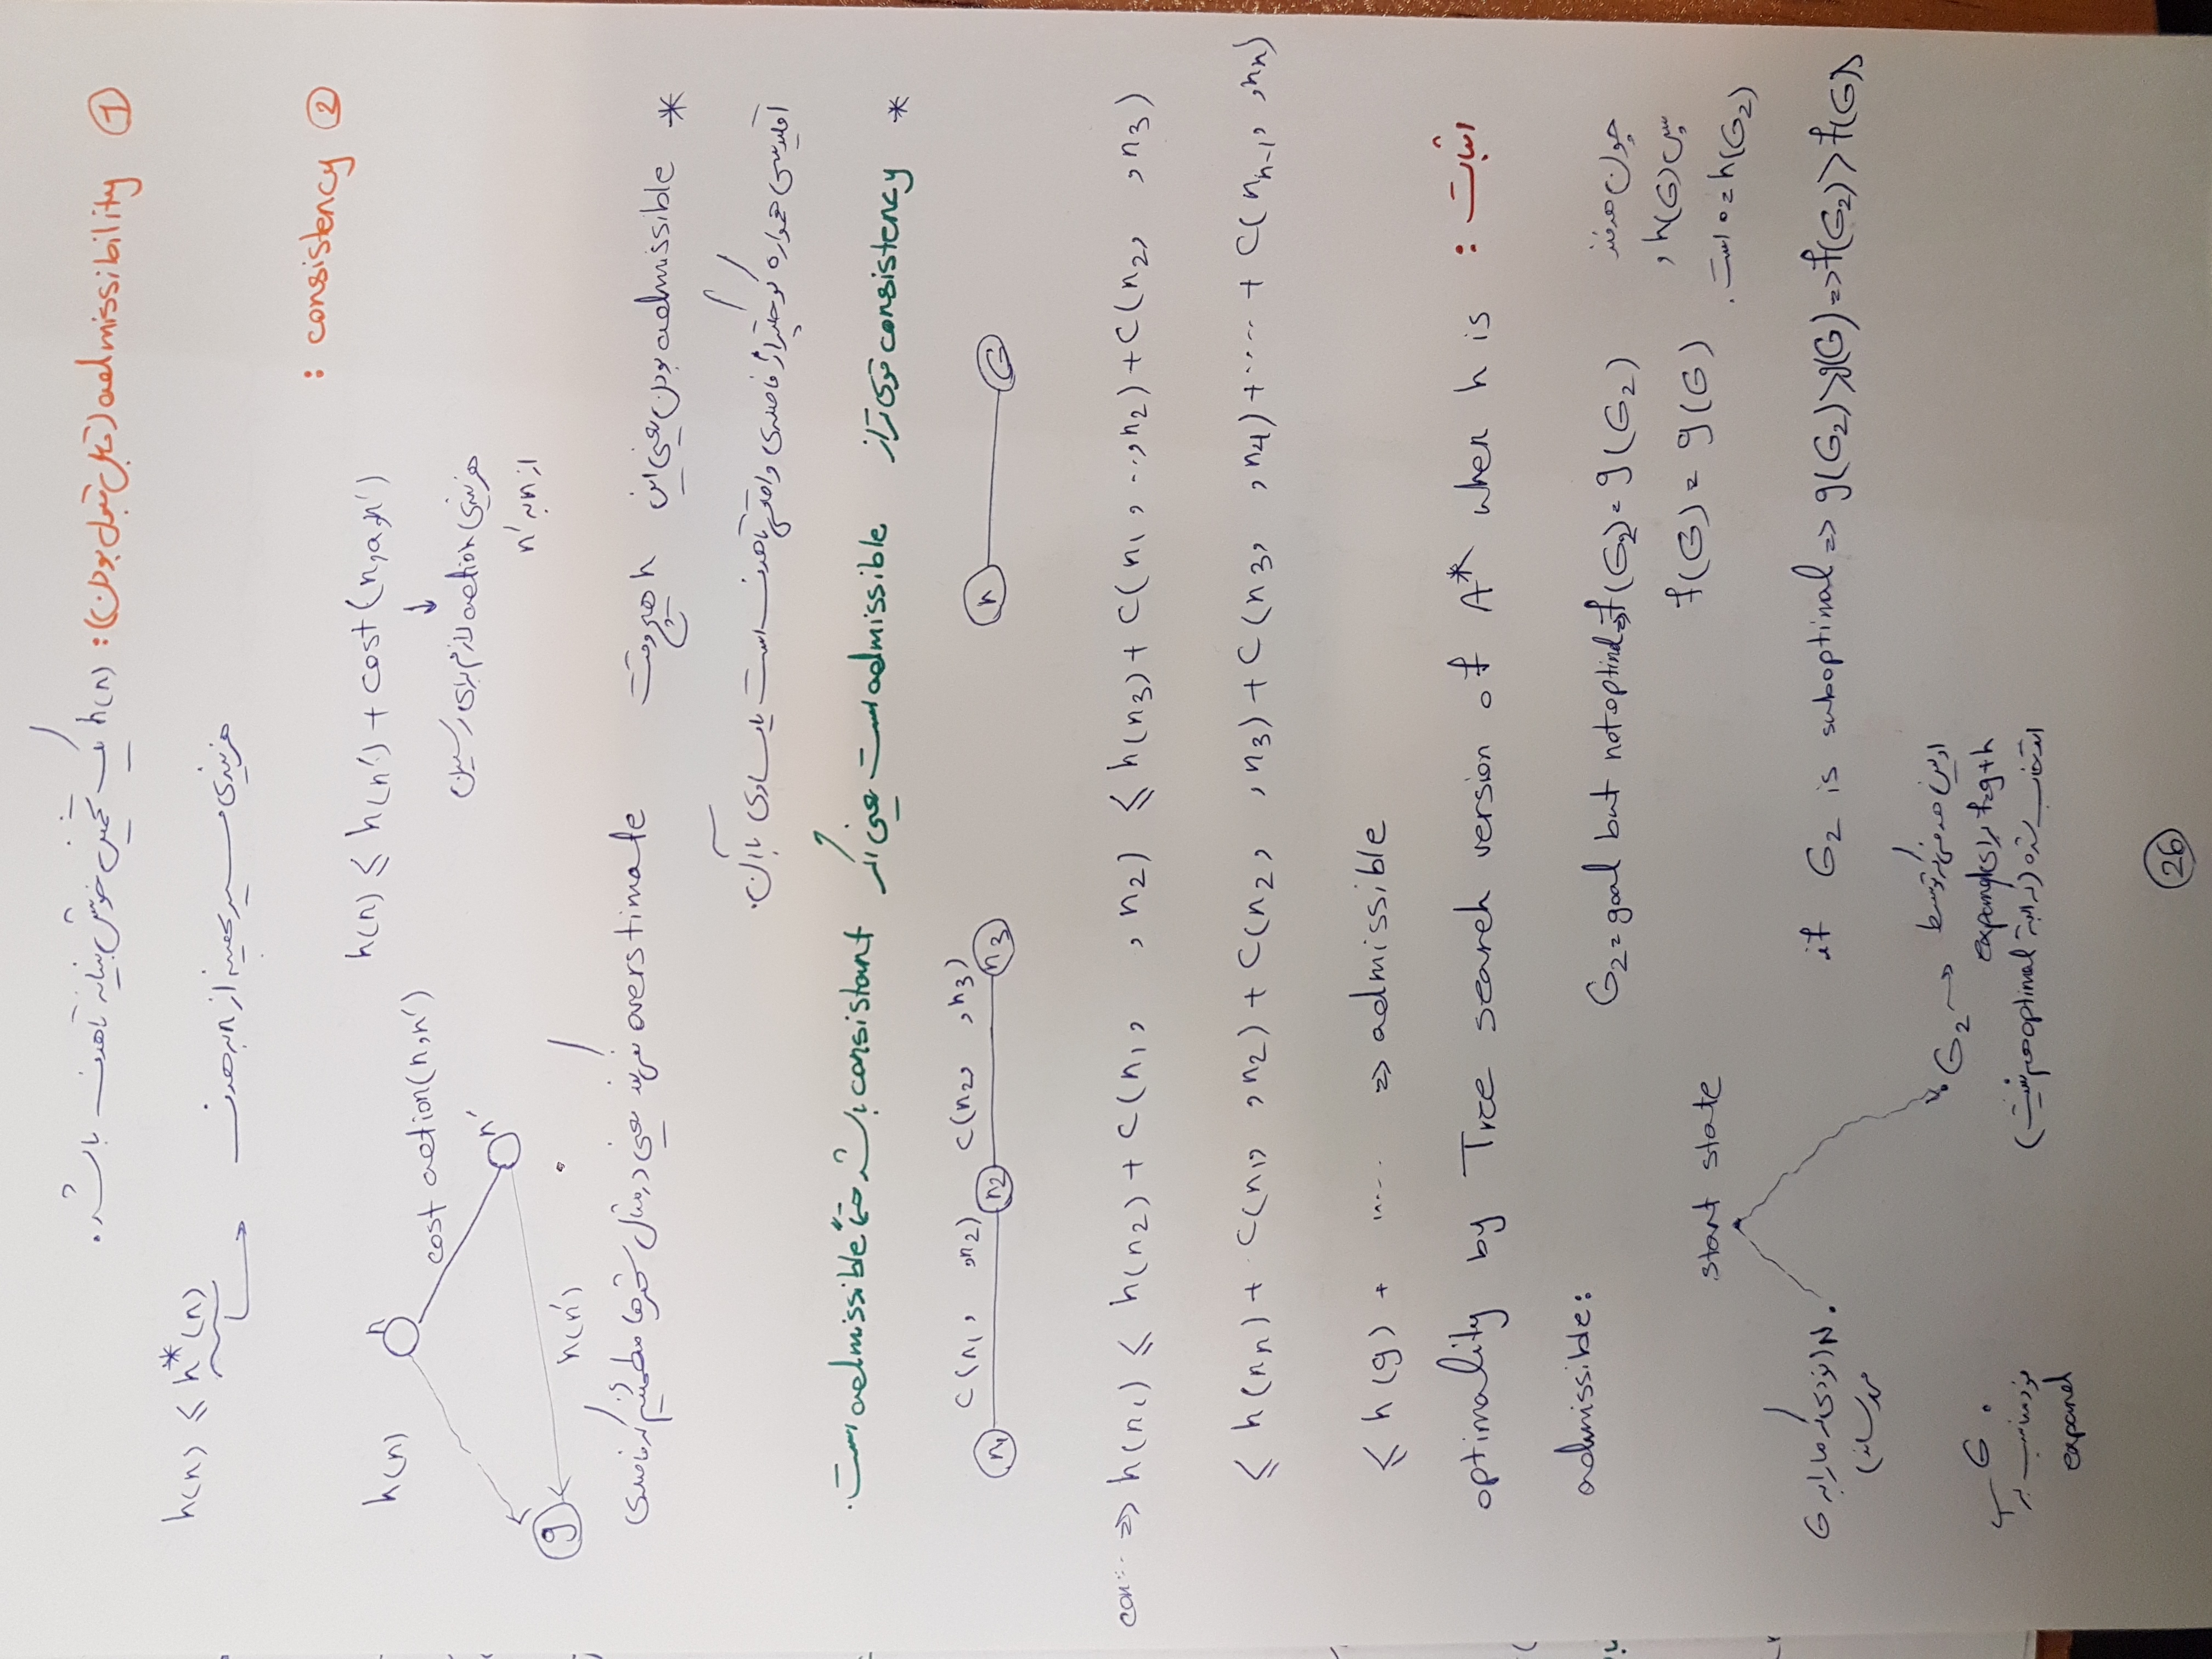 ① admissibility (قابل قبول بودن): h(n) یک تخمین خوش بینانه تا هدف باشد.
h(n) ≤ h*(n)
هزینه‌ی مسیر بهینه از n به هدف
② consistency :
h(n) ≤ h(n') + cost(n,a,n')
هزینه‌ی action لازم برای رسیدن
از n به n'
h(n)
n
cost action(n,n')
n'
g
h(n')
* admissible بودن یعنی این h هیچ وقت overstimate نمی‌کند یعنی در مثال شهرها مطمئنیم که فاصله‌ی
اقلیدسی همواره کوچکتر از فاصله‌ی واقعی تا هدف است یا مساوی با آن.
* consistency قوی تر از admissible است یعنی اگر consistant باشد حتماً admissible است.
n₁ C(n₁, ,n₂) n₂ C(n₂, ,n₃) n₃
n G
con... => h(n₁) ≤ h(n₂) + C(n₁, , n₂) ≤ h(n₃) + C(n₁, ..,n₂) + C(n₂, ,n₃)
≤ h(nₙ) + C(n₁, ,n₂) + C(n₂, ,n₃) + C(n₃, ,n₄) + .... + C(nₙ₋₁, ,nₙ)
≤ h(g) + ..... => admissible
اثبات : optimality by Tree search version of A* when h is
admissible:
G₂ = goal but not optimal => f(G₂) = g(G₂)
f(G) = g(G)
چون هدفند
پس h(G) و
h(G₂) = 0 است.
start state
N (نودی که ما را به G
می‌رساند)
if G₂ is suboptimal => g(G₂) > g(G) => f(G₂) > f(G)
G₂ → اولین هدفی که توسط
f=g+h برای expand
انتخاب شده (که البته optimal هم نیست)
G
نود مناسب برای
expand
26